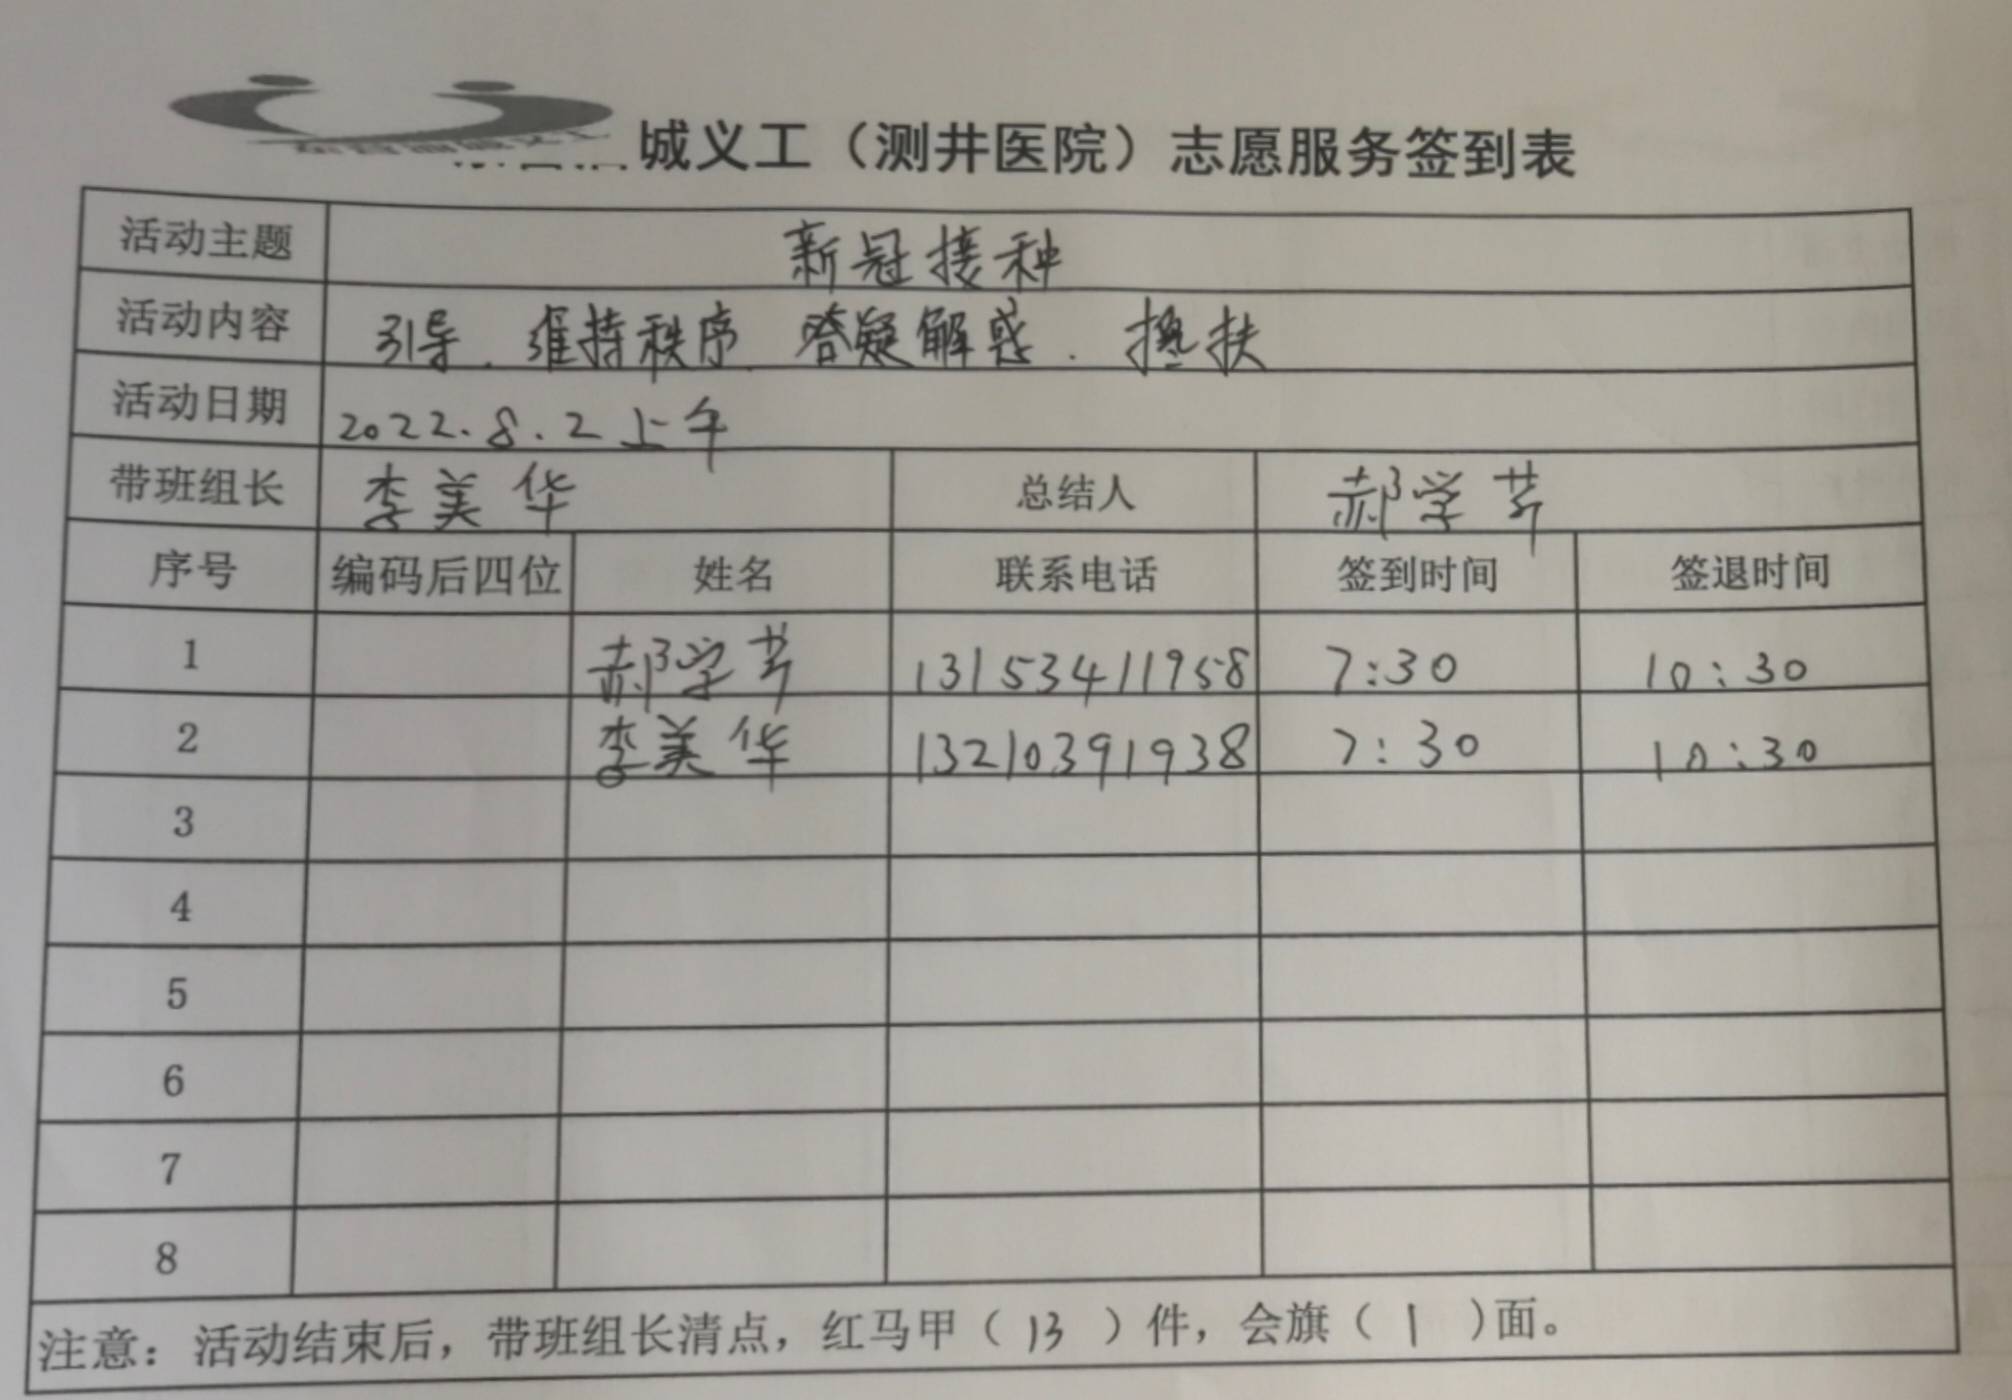 城义工（测井医院）志愿服务签到表
活动主题 新冠接种
活动内容 引导、维持秩序、答疑解惑、搀扶
活动日期 2022.8.2上午
带班组长 李美华 总结人 郝学芳
序号 编码后四位 姓名 联系电话 签到时间 签退时间
1 郝学芳 13153411958 7:30 10:30
2 李美华 13210391938 7:30 10:30
3
4
5
6
7
8
注意：活动结束后，带班组长清点，红马甲（13）件，会旗（1）面。